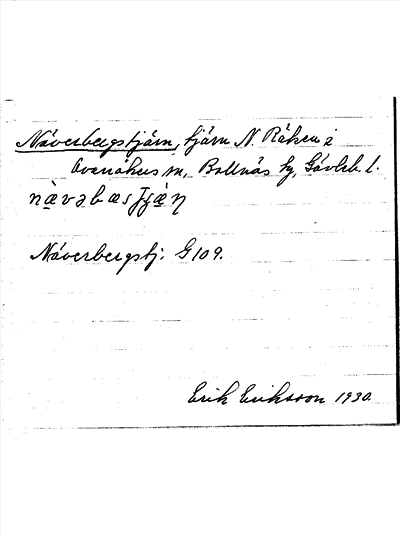 Näverbergstjärn, tjärn N. Räken i
Ovanåkers sn, Bollnäs fg, Gävleb. l.
Näverbergstj. G 109.
Erik Eriksson 1930.